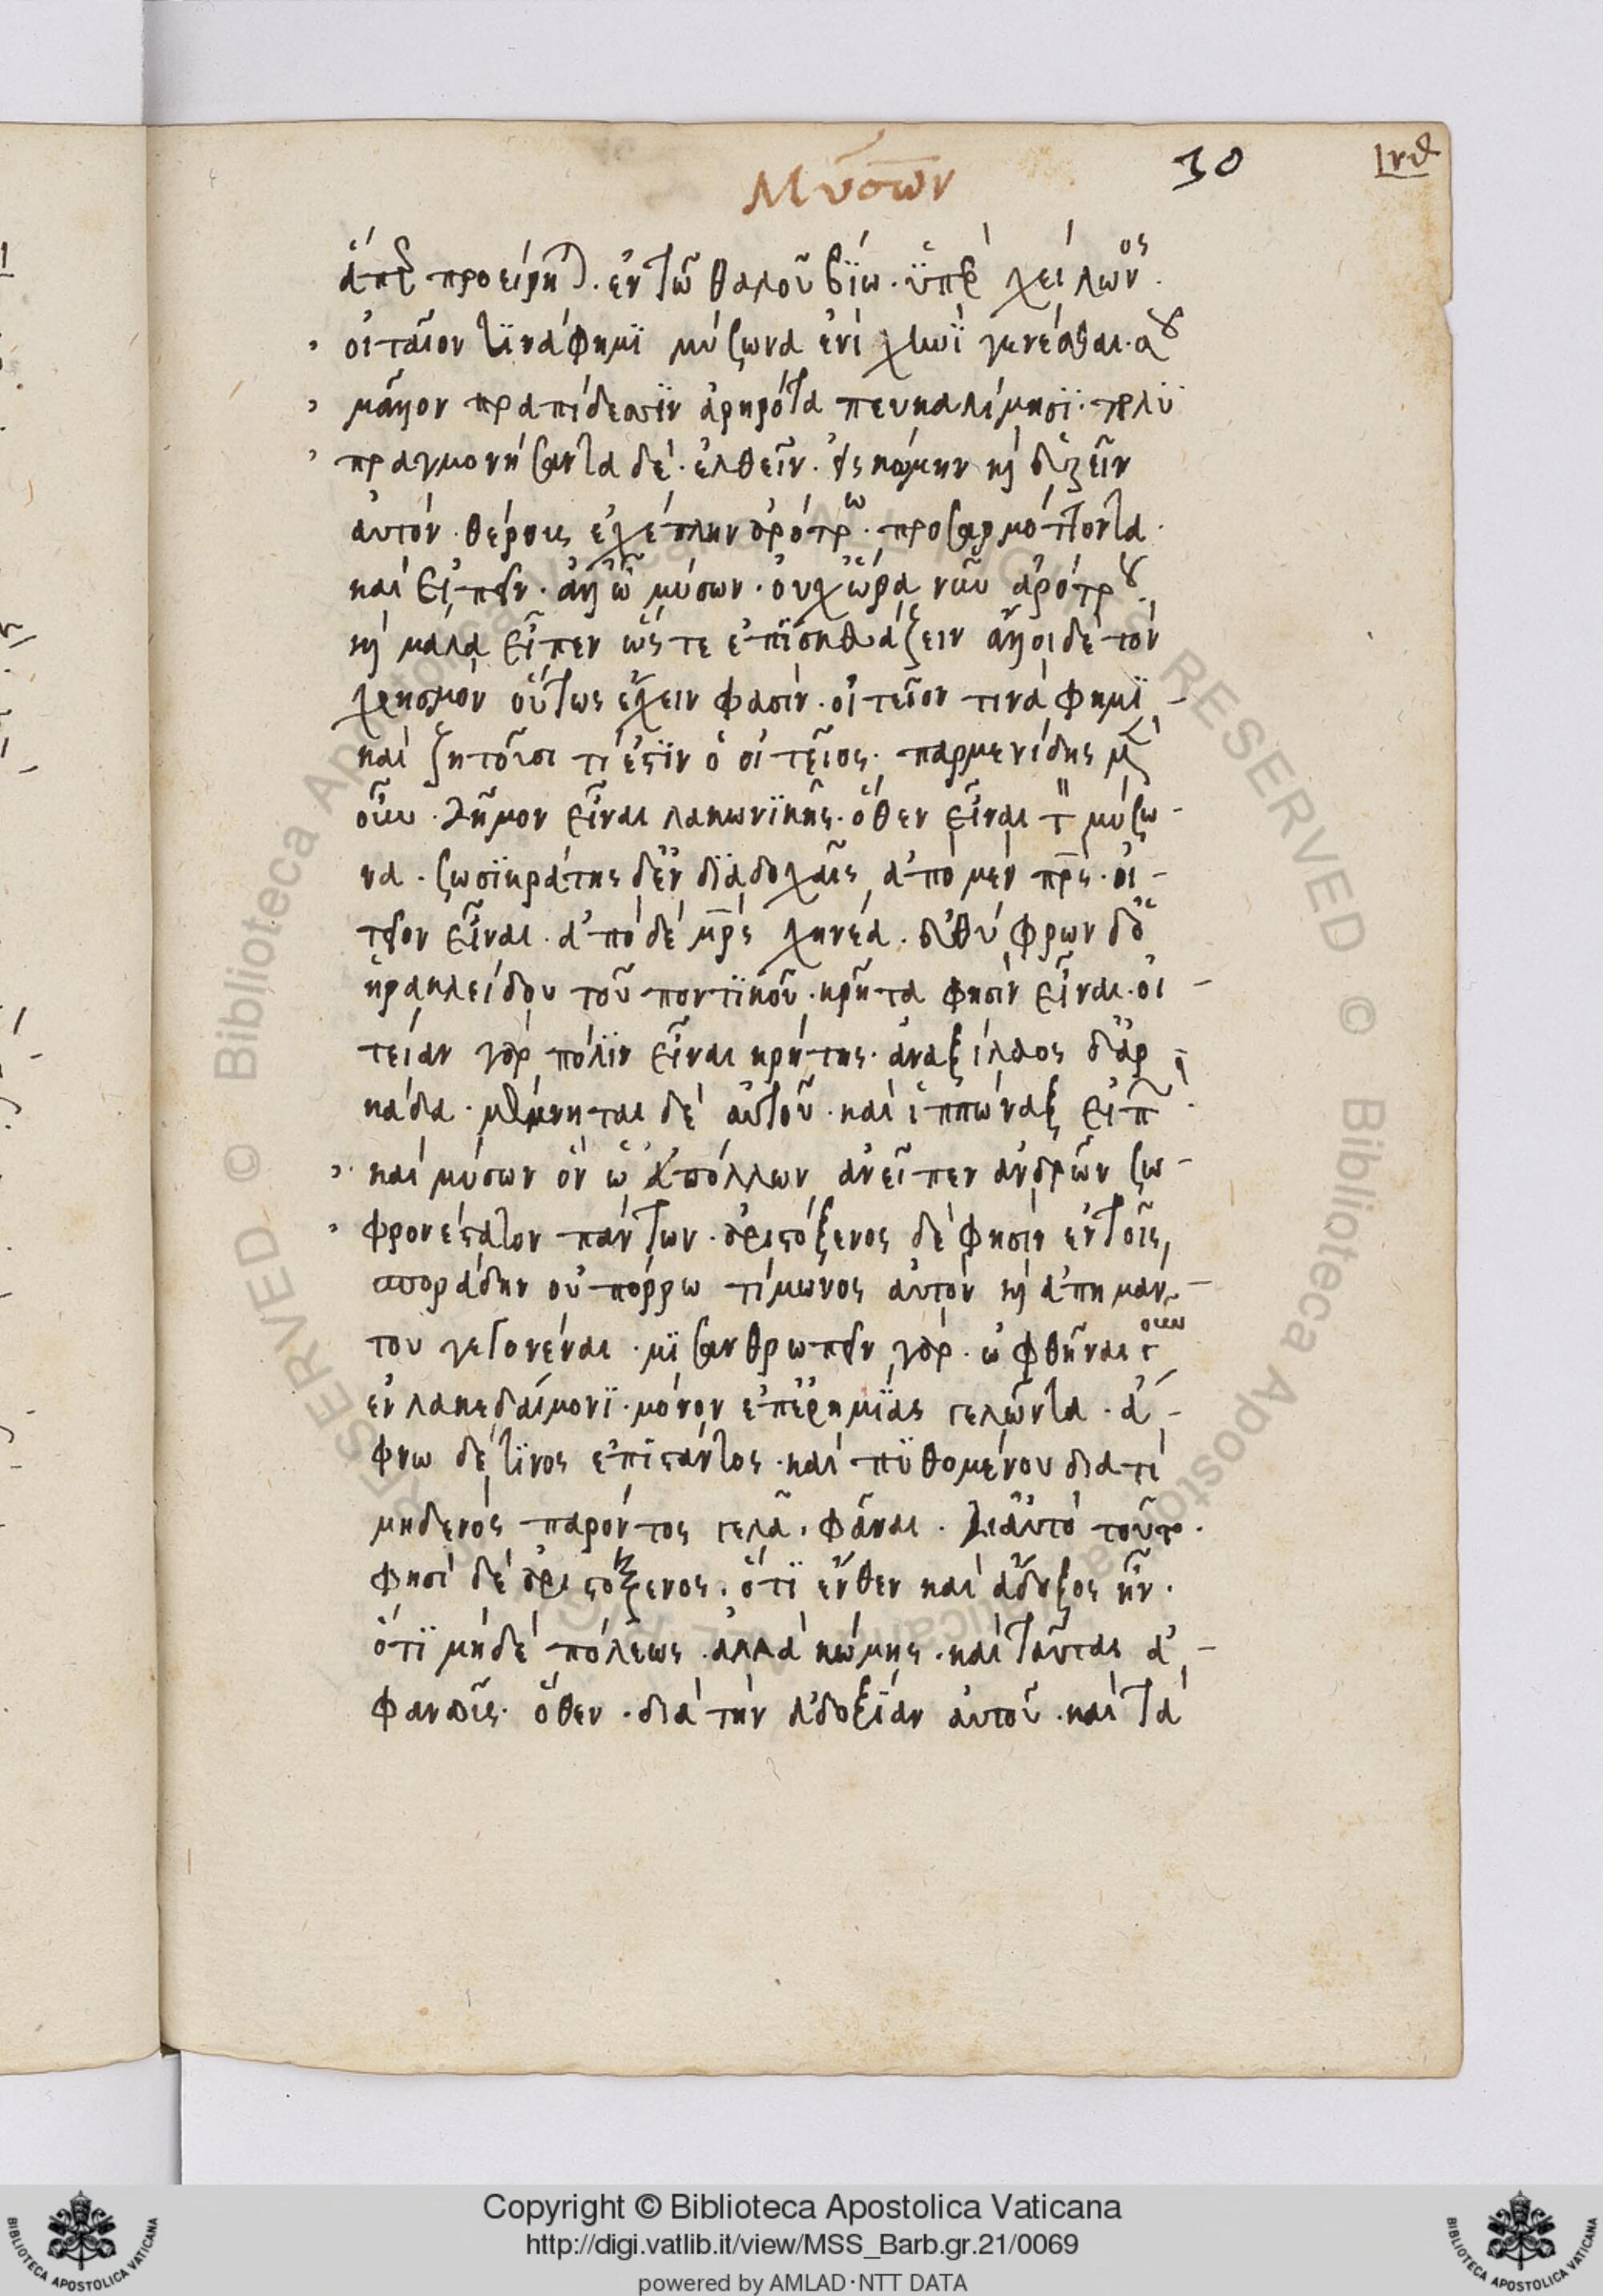 Μύσων
30
ἅπερ προείρηται. ἐν τῶ θαλοῦ βίω. ὑπὲρ χείλωνος.
οἰταῖον τινά φημὶ μύσωνα ἐνὶ χηνὶ γενέσθαι. σοῦ
μᾶλλον πραπίδεσσιν ἀρηρότα πευκαλίμησι. πολυ
πραγμονήσαντα δὲ. ἐλθεῖν. εἰς κώμην καὶ
αὐτὸν. θέρους ἐχέτλην ἀρότρω. προσαρμόττοντα.
καὶ εἰπεῖν. ἀλλ' ὦ μύσων. οὐχ ὥρα νῦν ἀρότρου.
καὶ μάλα εἶπεν ὥς τε ἐπισκευάζειν ἄλλοι δὲ τὸν
χρησμὸν οὕτως ἔχειν φασὶν. οἰτεῖον τινά φημὶ
καὶ ζητοῦσι τί ἐστὶν ὁ οἰτεῖος. παρμενίδης μὲν
οὖν. δῆμον εἶναι λακωνικῆς. ὅθεν εἶναι τὸν μύσω-
να. σωσικράτης δ' ἐν διαδοχαῖς ἀπὸ μὲν πατρὸς. οἰ-
τεῖον εἶναι. ἀπὸ δὲ μητρὸς χηνέα. εὐθύφρων δ' ὁ
ἡρακλείδου τοῦ ποντικοῦ. κρῆτα φησὶν εἶναι. οἰ-
τείαν γὰρ πόλιν εἶναι κρήτης. ἀναξίλαος δ' ἀρ-
κάδα. μέμνηται δὲ αὐτοῦ. καὶ ἱππώναξ εἰπὼν.
καὶ μύσων ὃν ὦ ἀπόλλων ἀνεῖπεν ἀνδρῶν σω-
φρονέστατον πάντων. ἀριστόξενος δὲ φησὶν ἐν τοῖς
σποράδην οὐ πόρρω τίμωνος αὐτὸν καὶ ἀπημάν-
του γεγονέναι. μισανθρωπεῖν γὰρ. ὠφθῆναι γοῦν
ἐν λακεδαίμονι. μόνον ἐπ' ἐρημίας γελῶντα. ἄ-
φνω δὲ τινος ἐπιστάντος. καὶ πυθομένου διατί
μηδενὸς παρόντος γελᾶ. φάναι. δι' αὐτὸ τοῦτο.
φησὶ δὲ ἀριστόξενος. ὅτι ἔνθεν καὶ ἄδοξος ἦν.
ὅτι μηδὲ πόλεως. ἀλλὰ κώμης. καὶ ταῦτας ἀ-
φανοῦς. ὅθεν. διὰ τὴν ἀδοξίαν αὐτοῦ. καὶ τὰ
Copyright © Biblioteca Apostolica Vaticana
http://digi.vatlib.it/view/MSS_Barb.gr.21/0069
powered by AMLAD·NTT DATA